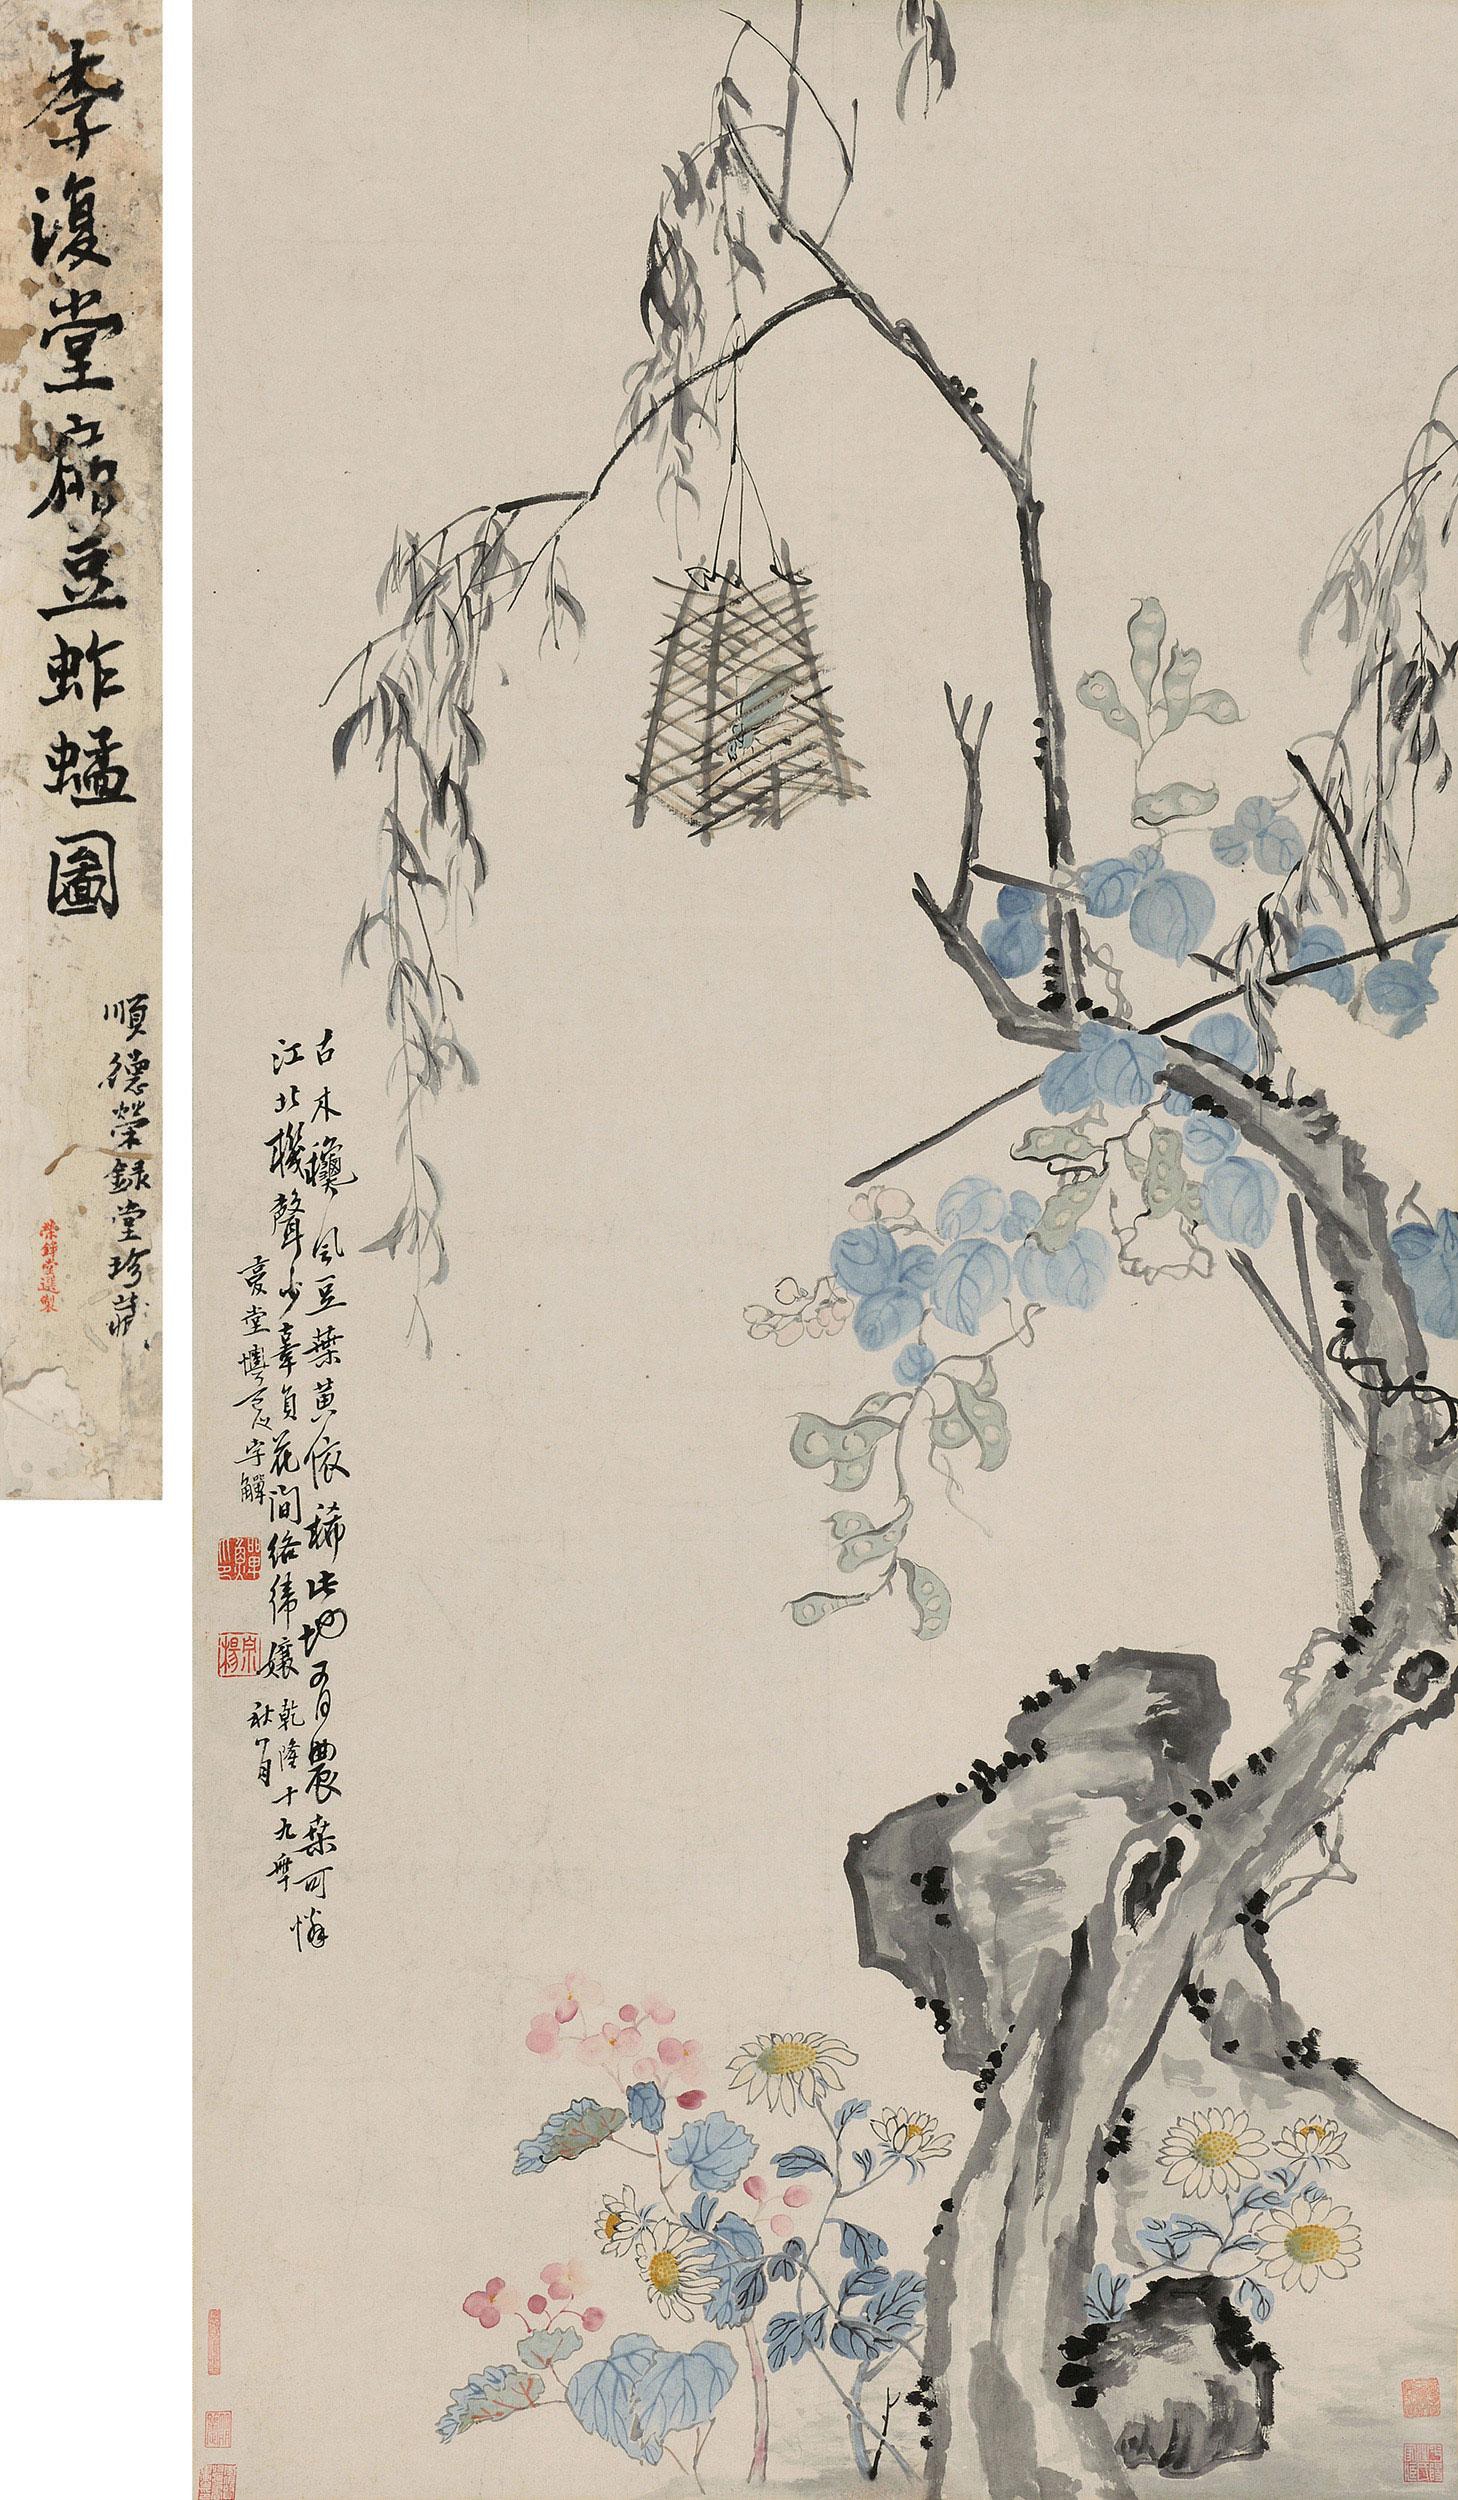 李復堂扁豆蚱蜢圖
順德榮録堂珍藏
古木風豆葉黃依稀此地有農桑可憐
江北機聲少辜負花間絡緯孃 乾隆十九年
秋月
復堂懊道人李鱓